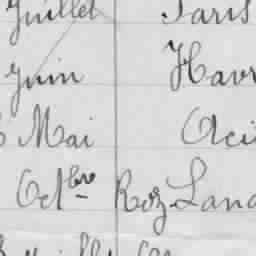 Juillet Paris
Juin Havr
Mai Aci
Octbre Roz-Land